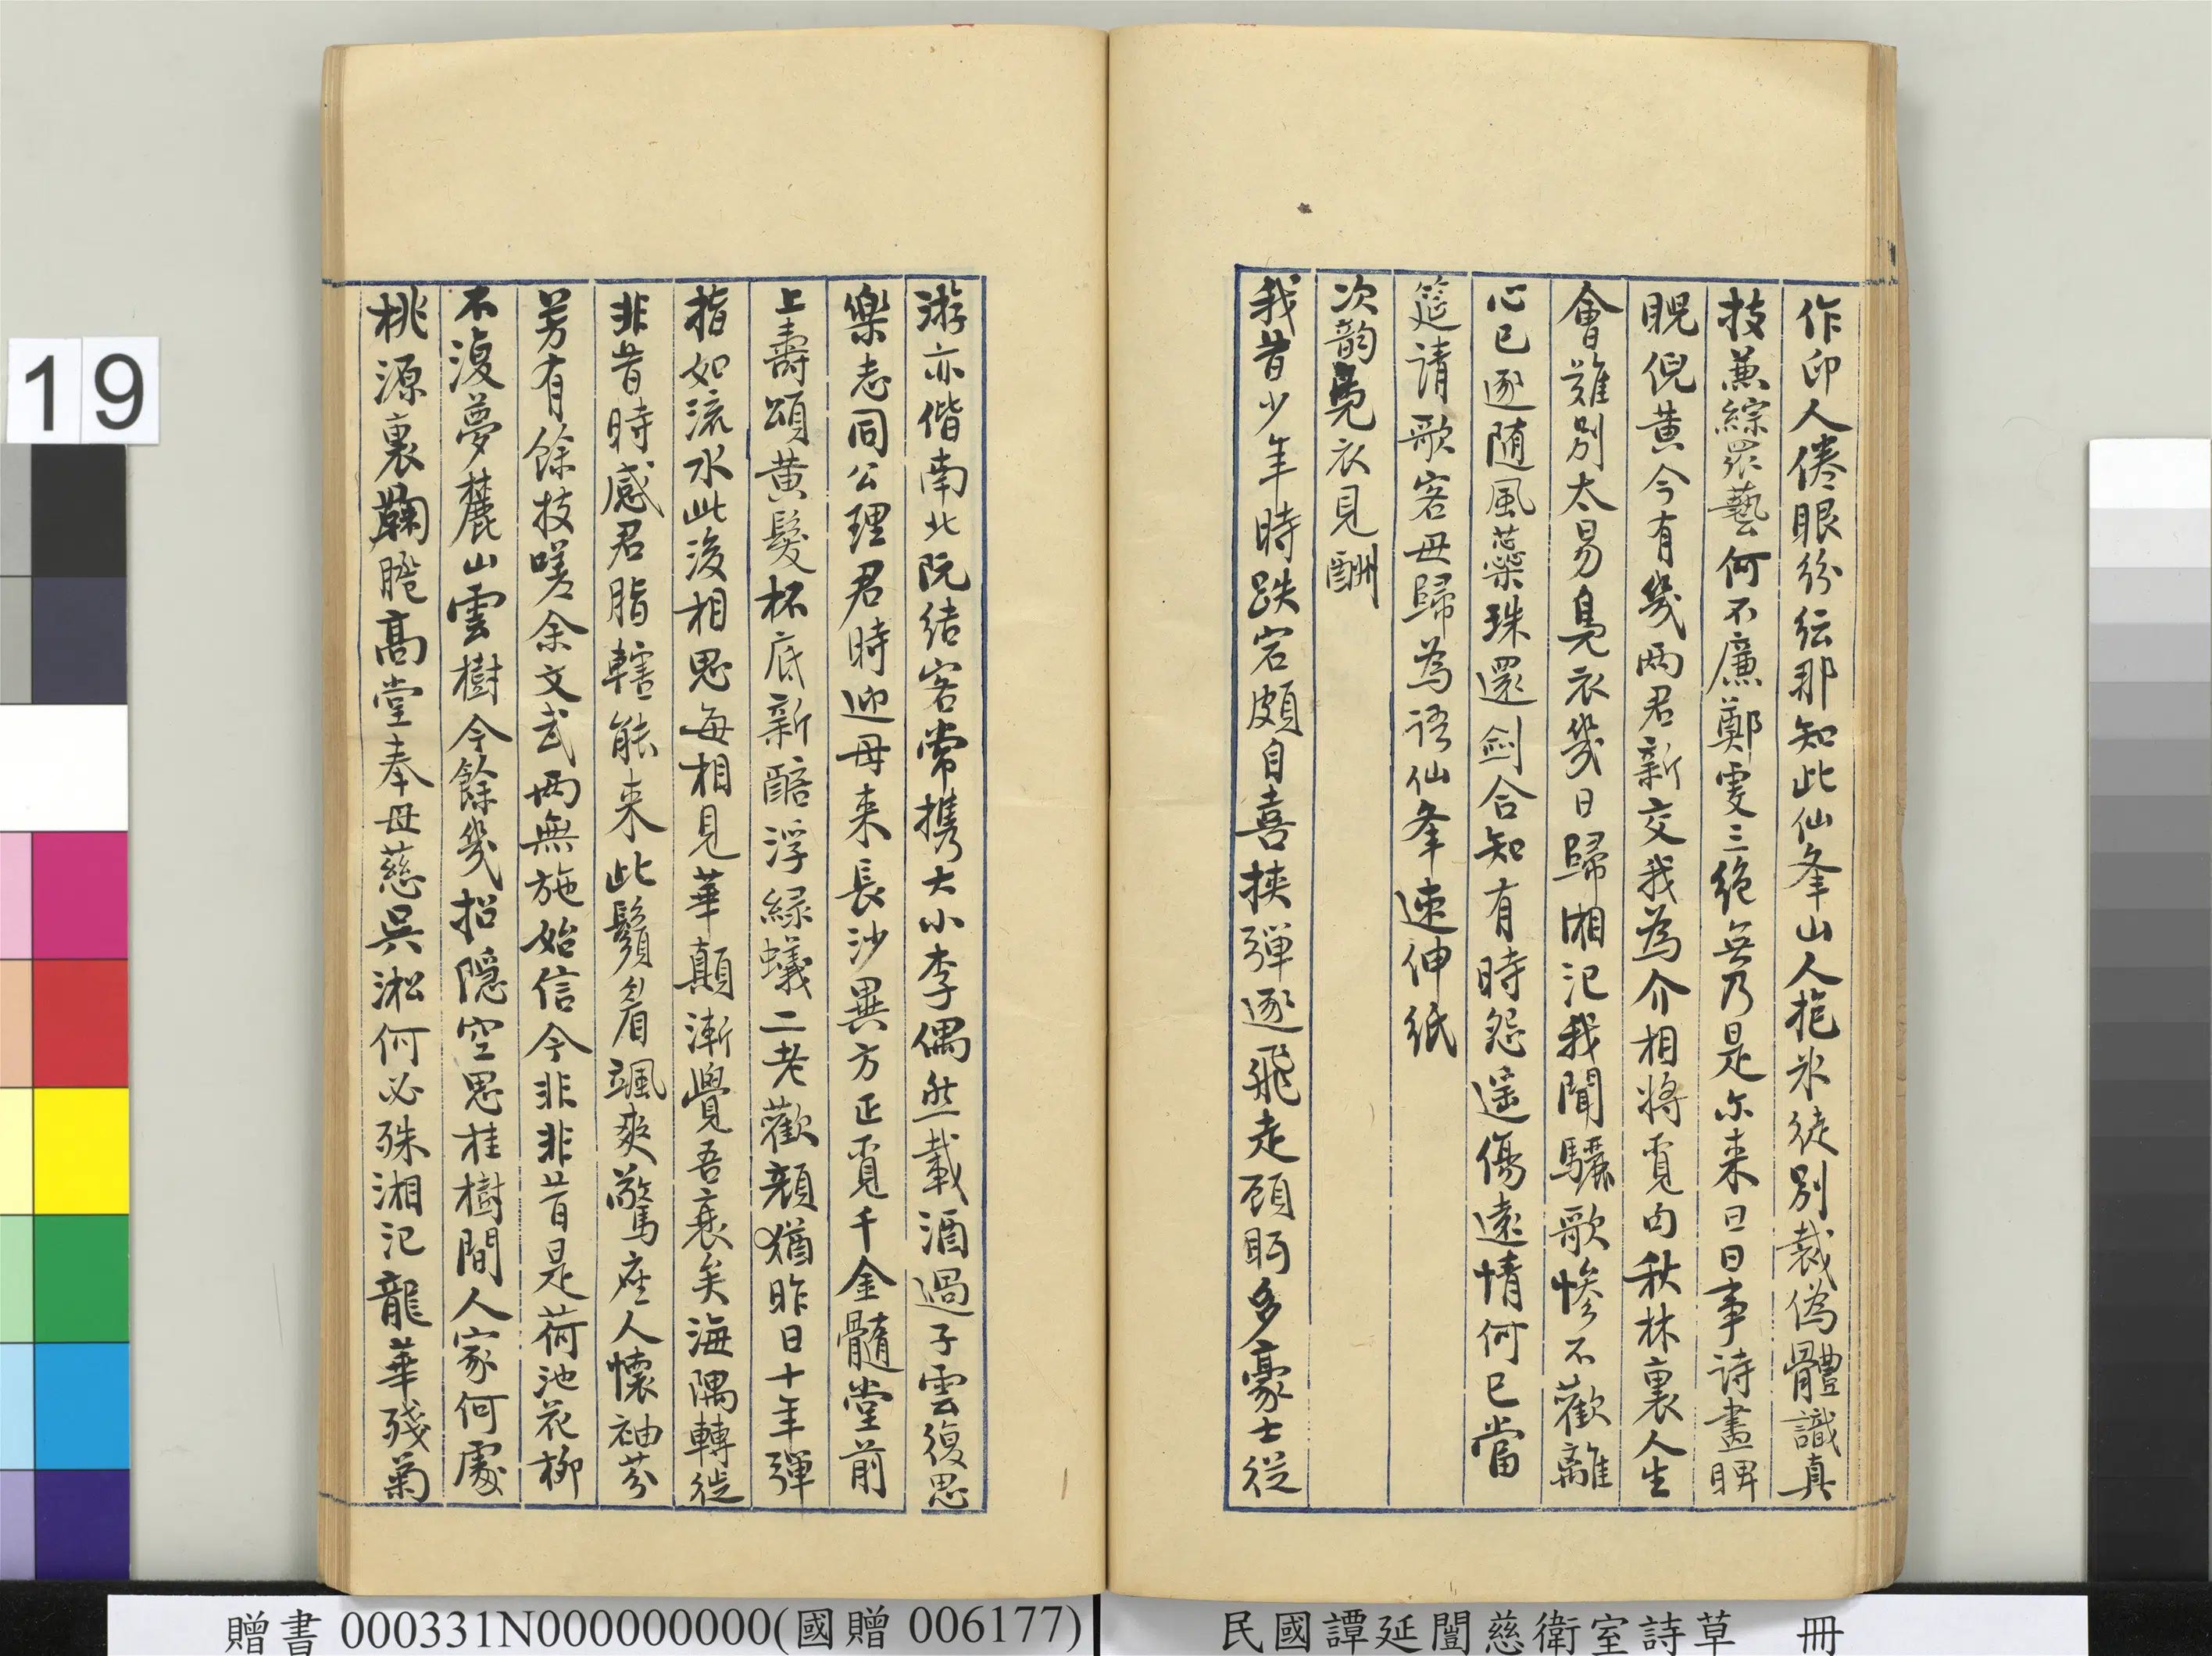 作印人倦眼紛紜那知此仙峯山人抱冰徒別裁偽體識真
技兼綜眾藝何不廉鄭虔三絕無乃是尔来日日事詩畫睥
睨倪黄今有幾兩君新交我為介相將覓句秋林裏人生
會難別太易鳧衣幾日歸湘汜我聞驪歌慘不歡離
心已逐随風蘂珠還劍合知有時怨遥傷遠情何已當
筵請歌客毋歸為語仙峯速伸紙
次韵鳧衣見酬
我昔少年時跌宕頗自喜挾彈逐飛走顧眄多豪士從
游亦偕南北阮結客常携大小李偶然載酒過子雲復思
樂志同公理君時迎母来長沙異方正覓千金髓堂前
上壽頌黄髮杯底新醅浮緑蟻二老歡顏猶昨日十年彈
指如流水此後相思每相見華顛漸覺吾衰矣海隅轉徙
非昔時感君脂轄能来此鬚眉看颯爽驚座人懷袖芬
芳有餘技嗟余文武兩無施始信今非非昔是荷池花柳
不復夢麓山雲樹今餘幾招隱空思桂樹間人家何處
桃源裏鞠䏰高堂奉母慈吳淞何必殊湘汜龍華殘菊
19
贈書 000331N000000000(國贈 006177)
民國譚延闓慈衛室詩草 冊